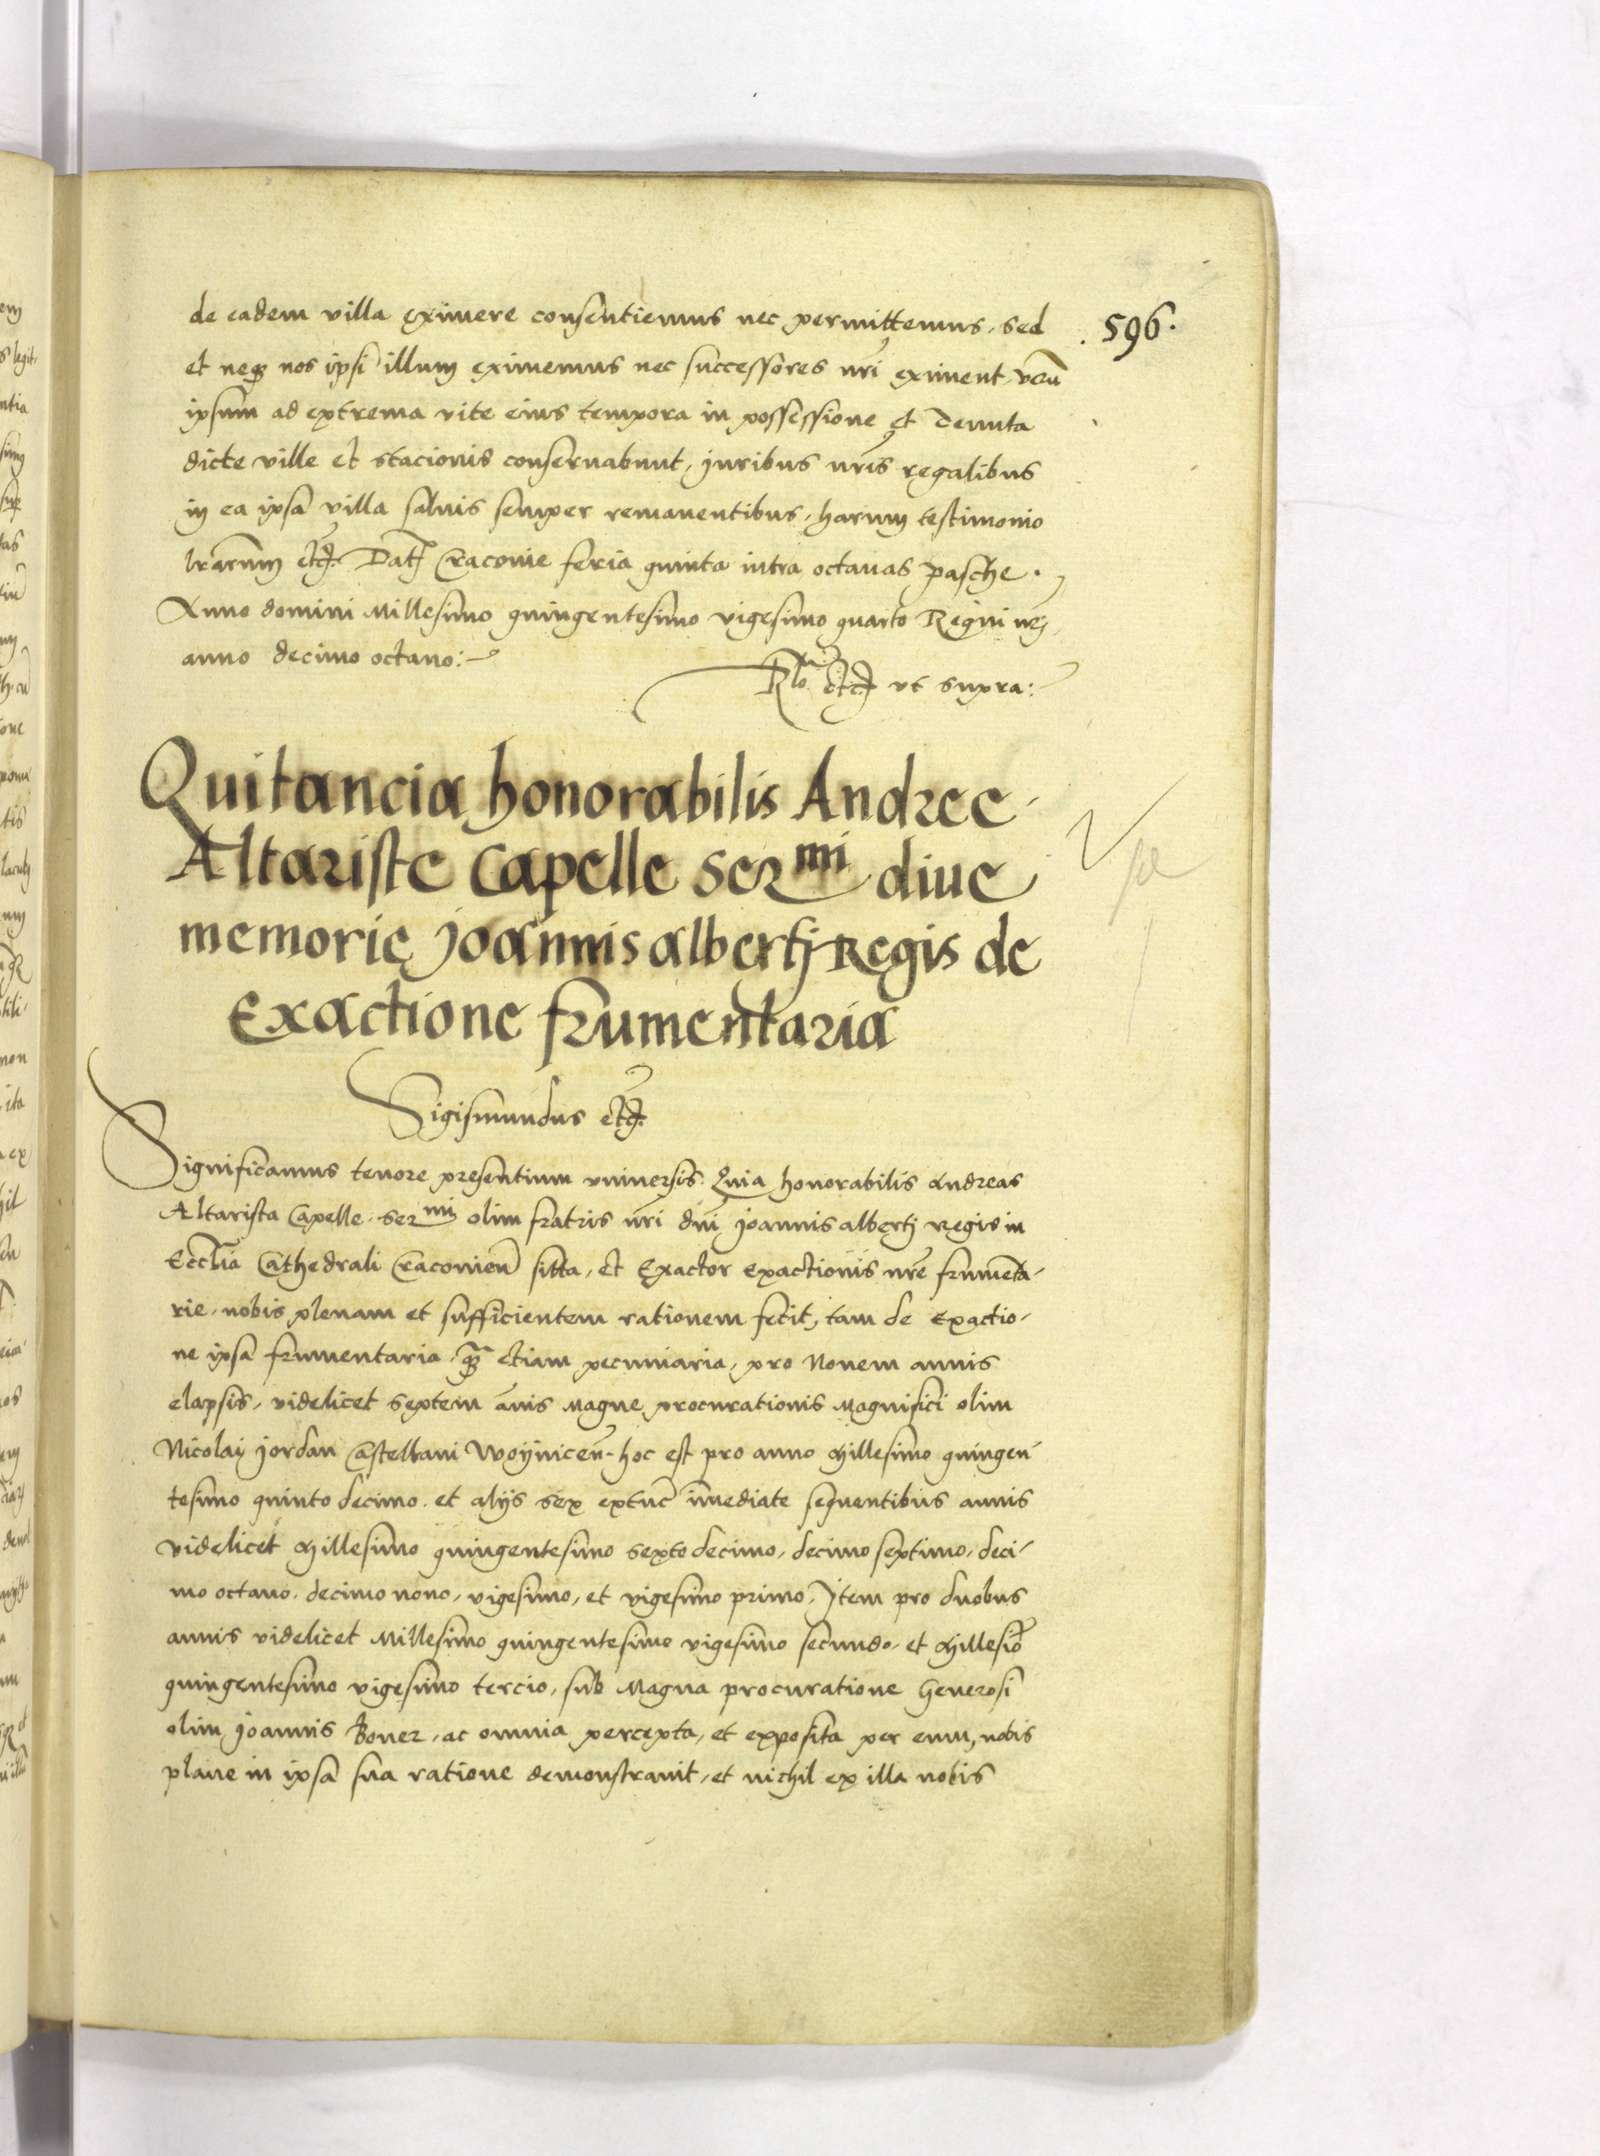 de eadem villa eximere consentiemus nec permittemus, sed
596.
et neq̃ nos ipsi illum eximemus nec successores nrĩ eximent, verũ
ipsum ad extrema vite eius tempora in possessione et tenuta
dicte ville et stacionis conservabunt, juribus nrĩs regalibus
in ea ipsa villa salvis semper remanentibus, harum testimonio
lrãrum etc. Dat Cracovie feria quinta intra octavas pasche.
Anno domini Millesimo quingentesimo vigesimo quarto Regni nrĩ
anno decimo octavo:
Rlõ etc ut supra:
Quitancia honorabilis Andree
Altariste Capelle Ser mi dive
memorie Joannis alberti Regis de
Exactione frumentaria
Sigismundus etc.
Significamus tenore presentium universis. Quia honorabilis Andreas
Altarista Capelle Ser mi olim fratris nrĩ dnĩ Joannis alberti regis in
Ecclĩa Cathedrali Cracovien̄ sitta, et Exactor exactionis nrẽ frumẽta-
rie, nobis plenam et sufficientem rationem fecit, tam de exactio-
ne ipsa frumentaria, q̃ etiam pecuniaria, pro Novem annis
elapsis, videlicet septem ãnis Magne procurationis Magnifici olim
Nicolai Jordan Castellani Woynicen̄. hoc est pro anno Millesimo quingen-
tesimo quinto decimo. et alijs sex extunc ĩmediate sequentibus annis
videlicet Millesimo quingentesimo sexto decimo, decimo septimo, deci-
mo octavo, decimo nono, vigesimo, et vigesimo primo, Item pro duobus
annis videlicet Millesimo quingentesimo vigesimo secundo, et Millesiõ
quingentesimo vigesimo tercio, sub Magna procuratione Generosi
olim Joannis Boner, ac omnia percepta, et exposita per eum, nobis
plane in ipsa sua ratione demonstravit, et nichil ex illa nobis